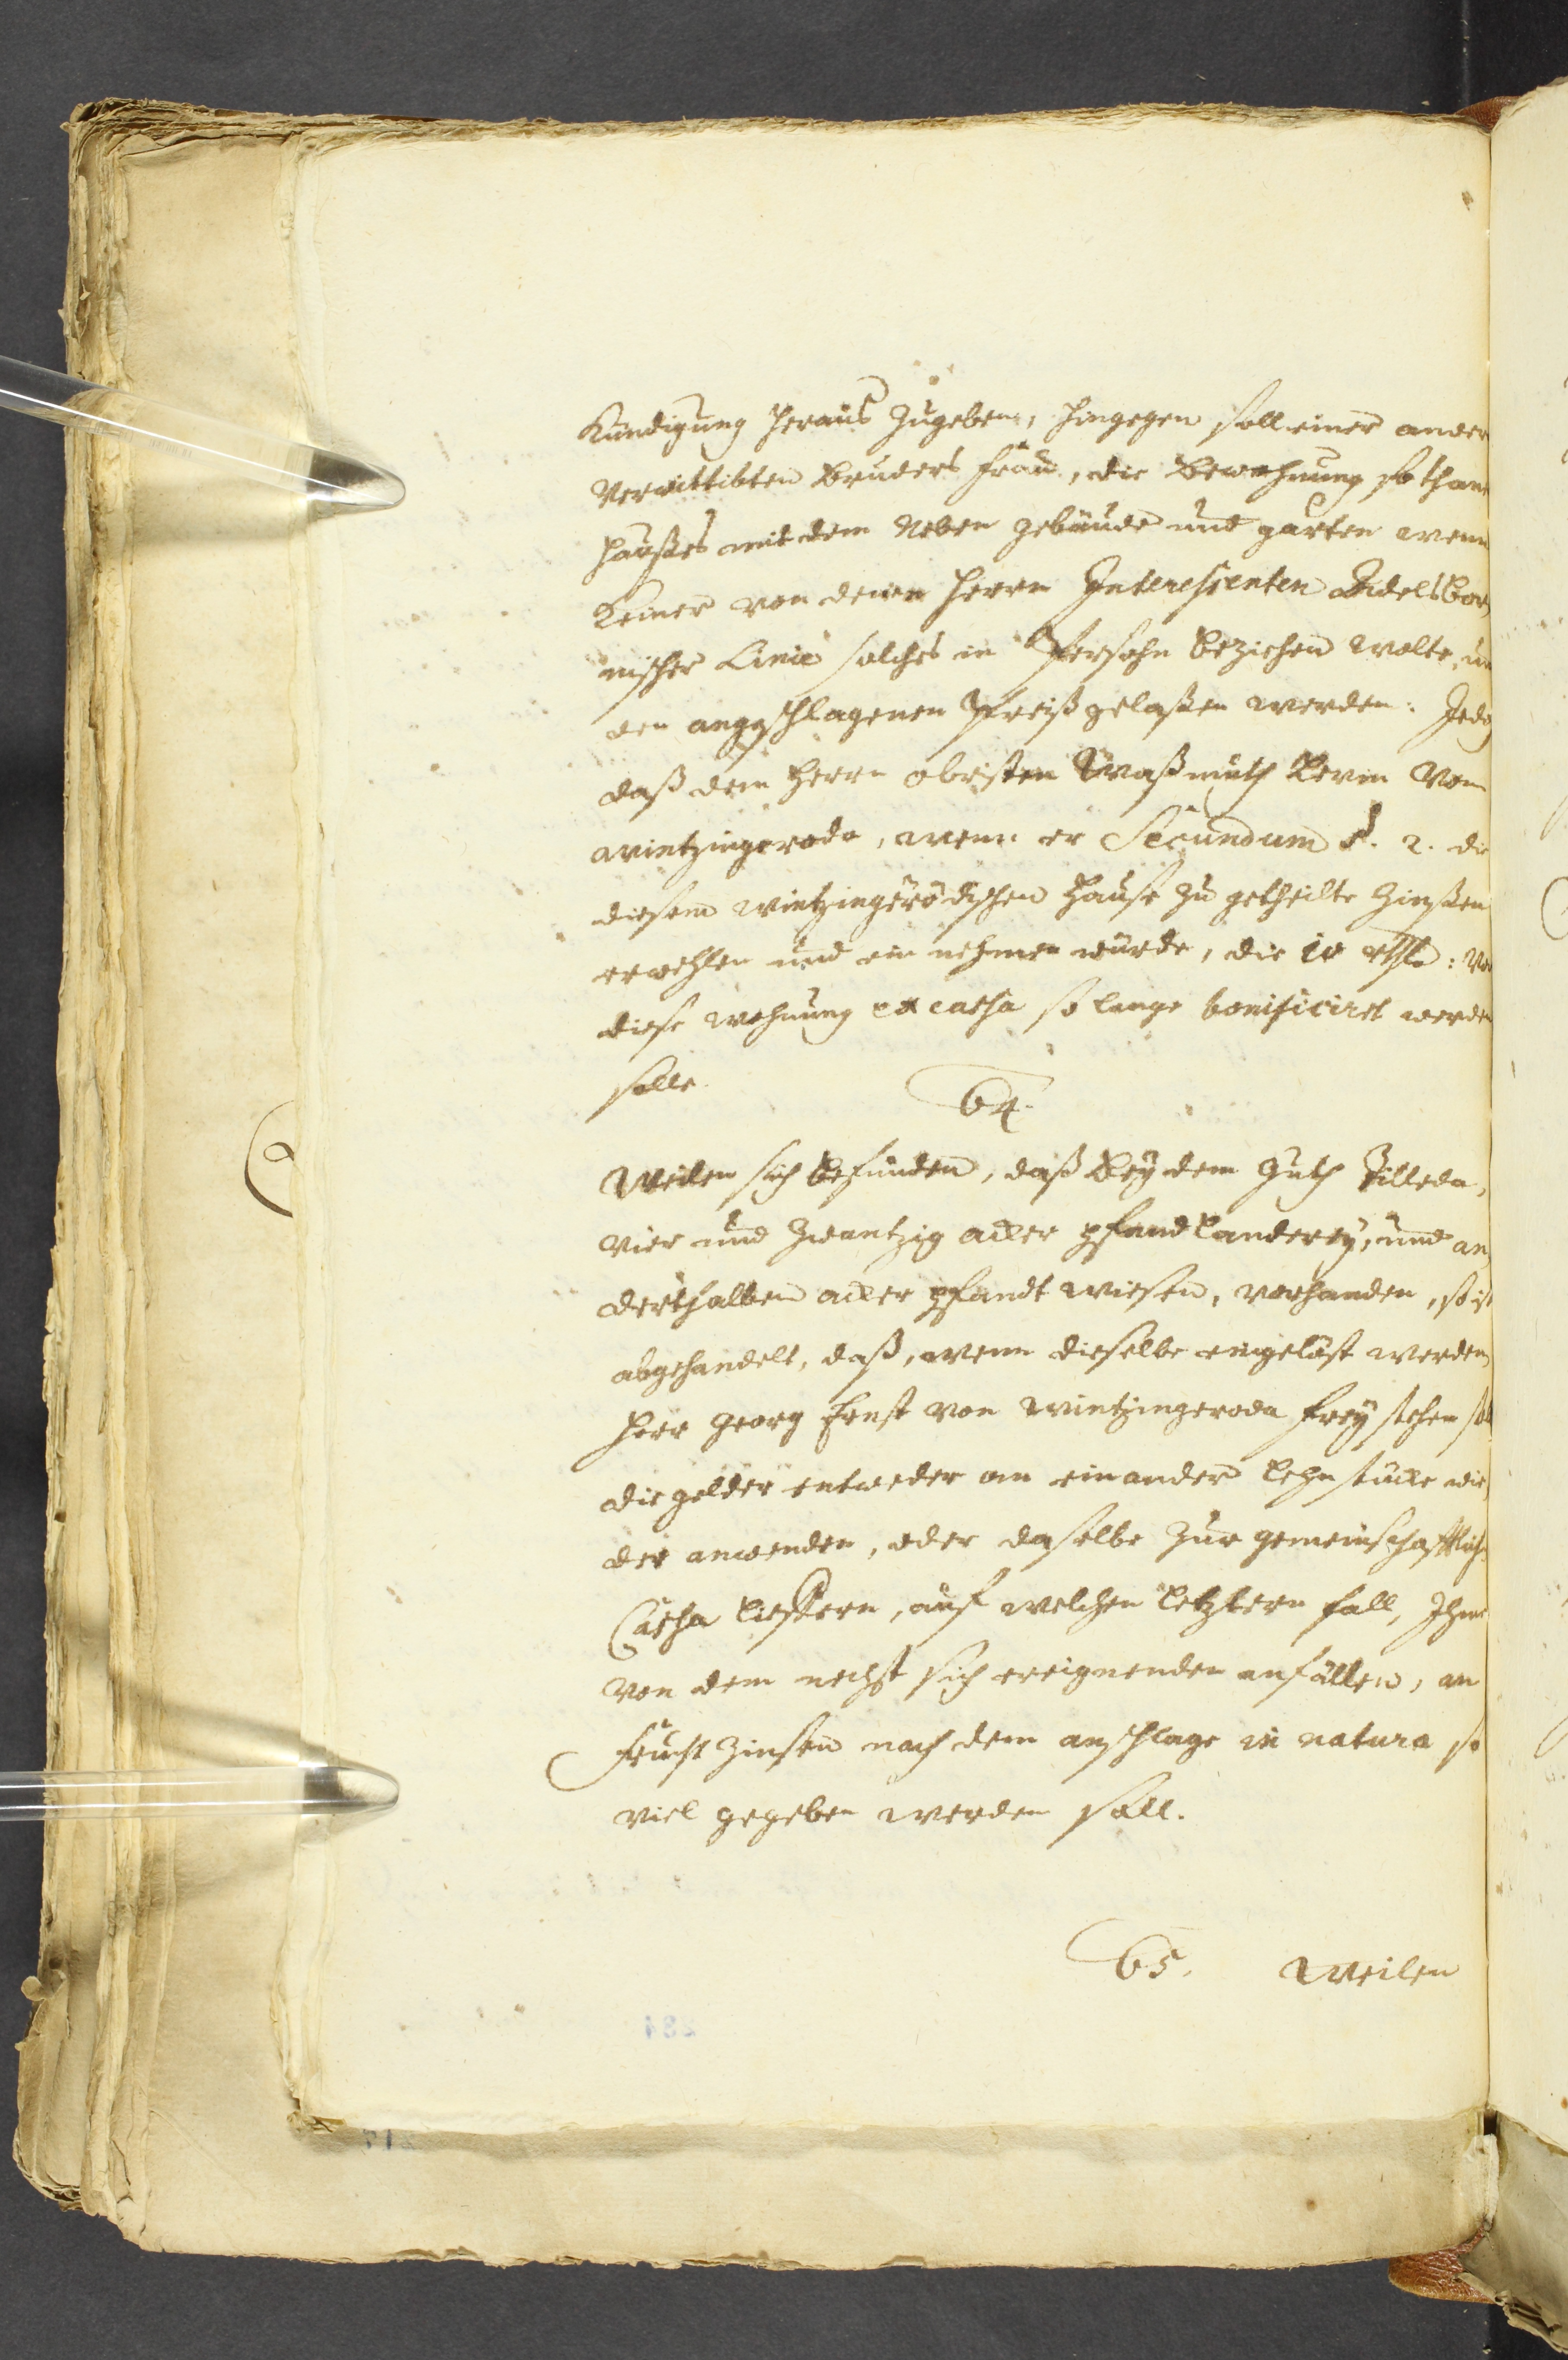 Kündigung heraus zugeben, hingegen soll einer ander
Verwittibten Bruders Frau, die Bewohnung sothan
Haußes mit dem Neben gebäude und garten wenn
Keiner von denen Herrn Interessenten Adelsbor,
nischer Linie solches in Persohn beziehen wolte, um
den angeschlagenen Preiß gelaßen werden: Jedoch
daß dem Herrn obristen Waßmuth Levin Von
Wintzingeroda, wenn er Secundum §. 2. die
diesem Wintzingerödischen Hause zu getheilte Zinßen
erwehlen und ein nehmen würde, die 10 rthlr: vor
diese wohnung ex cassa so lange bonificiret werden
solle.
64.
Weilen sich befunden, daß bey dem Guth Tilleda,
vier und zwantzig acker pfand länderey, und an,
derthalben acker pfandt wiesen, vorhanden, so ist
abgehandelt, daß, wenn dieselbe eingelöst werden
Herr Georg Ernst von Wintzingeroda frey stehen soll
die gelder entweder an ein ander Lehn stücke wie,
der anwenden, oder daselbe zur gemeinschafftlichen
Cassa lieffern, auf welchen letztern fall, Ihme
von dem nechst sich ereignenden anfällen, an
Frucht Zinsen nach dem anschlage in natura so
viel gegeben werden soll.
65. Weilen
284